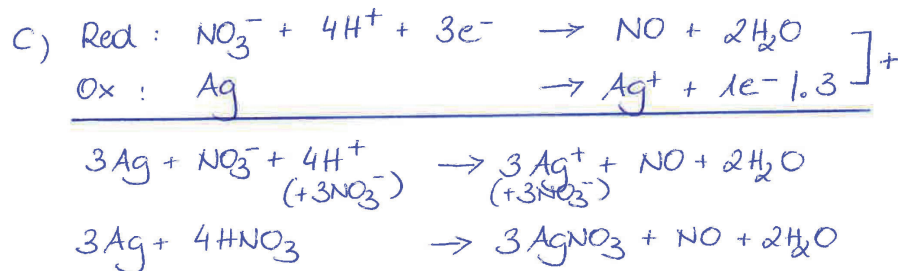 C) Red : NO₃⁻ + 4H⁺ + 3e⁻ → NO + 2H₂O
Ox : Ag → Ag⁺ + 1e⁻ |·3 ] +
3Ag + NO₃⁻ + 4H⁺ → 3Ag⁺ + NO + 2H₂O
(+3NO₃⁻) (+3NO₃⁻)
3Ag + 4HNO₃ → 3AgNO₃ + NO + 2H₂O